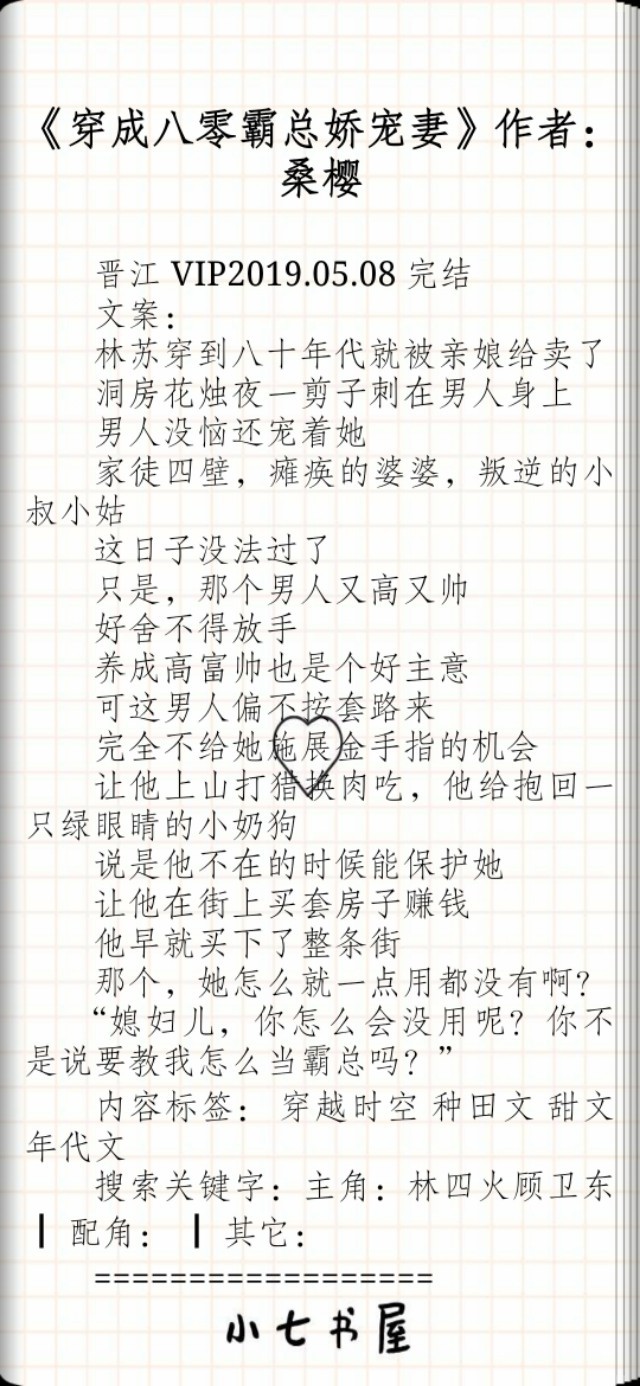 《穿成八零霸总娇宠妻》作者：
桑樱
晋江 VIP2019.05.08 完结
文案：
林苏穿到八十年代就被亲娘给卖了
洞房花烛夜一剪子刺在男人身上
男人没恼还宠着她
家徒四壁，瘫痪的婆婆，叛逆的小
叔小姑
这日子没法过了
只是，那个男人又高又帅
好舍不得放手
养成高富帅也是个好主意
可这男人偏不按套路来
完全不给她施展金手指的机会
让他上山打猎换肉吃，他给抱回一
只绿眼睛的小奶狗
说是他不在的时候能保护她
让他在街上买套房子赚钱
他早就买下了整条街
那个，她怎么就一点用都没有啊？
“媳妇儿，你怎么会没用呢？你不
是说要教我怎么当霸总吗？”
内容标签： 穿越时空 种田文 甜文
年代文
搜索关键字：主角：林四火顾卫东
┃ 配角： ┃ 其它：
==================
小七书屋